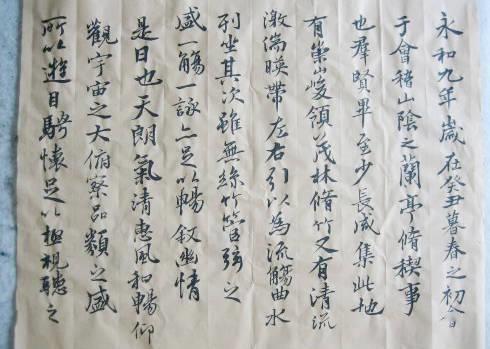 永和九年歲在癸丑暮春之初會
于會稽山陰之蘭亭脩稧事
也羣賢畢至少長咸集此地
有崇山峻領茂林脩竹又有清流
激湍暎帶左右引以為流觴曲水
列坐其次雖無絲竹管弦之
盛一觴一詠亦足以暢敘幽情
是日也天朗氣清惠風和暢仰
觀宇宙之大俯察品類之盛
所以遊目騁懷足以極視聽之